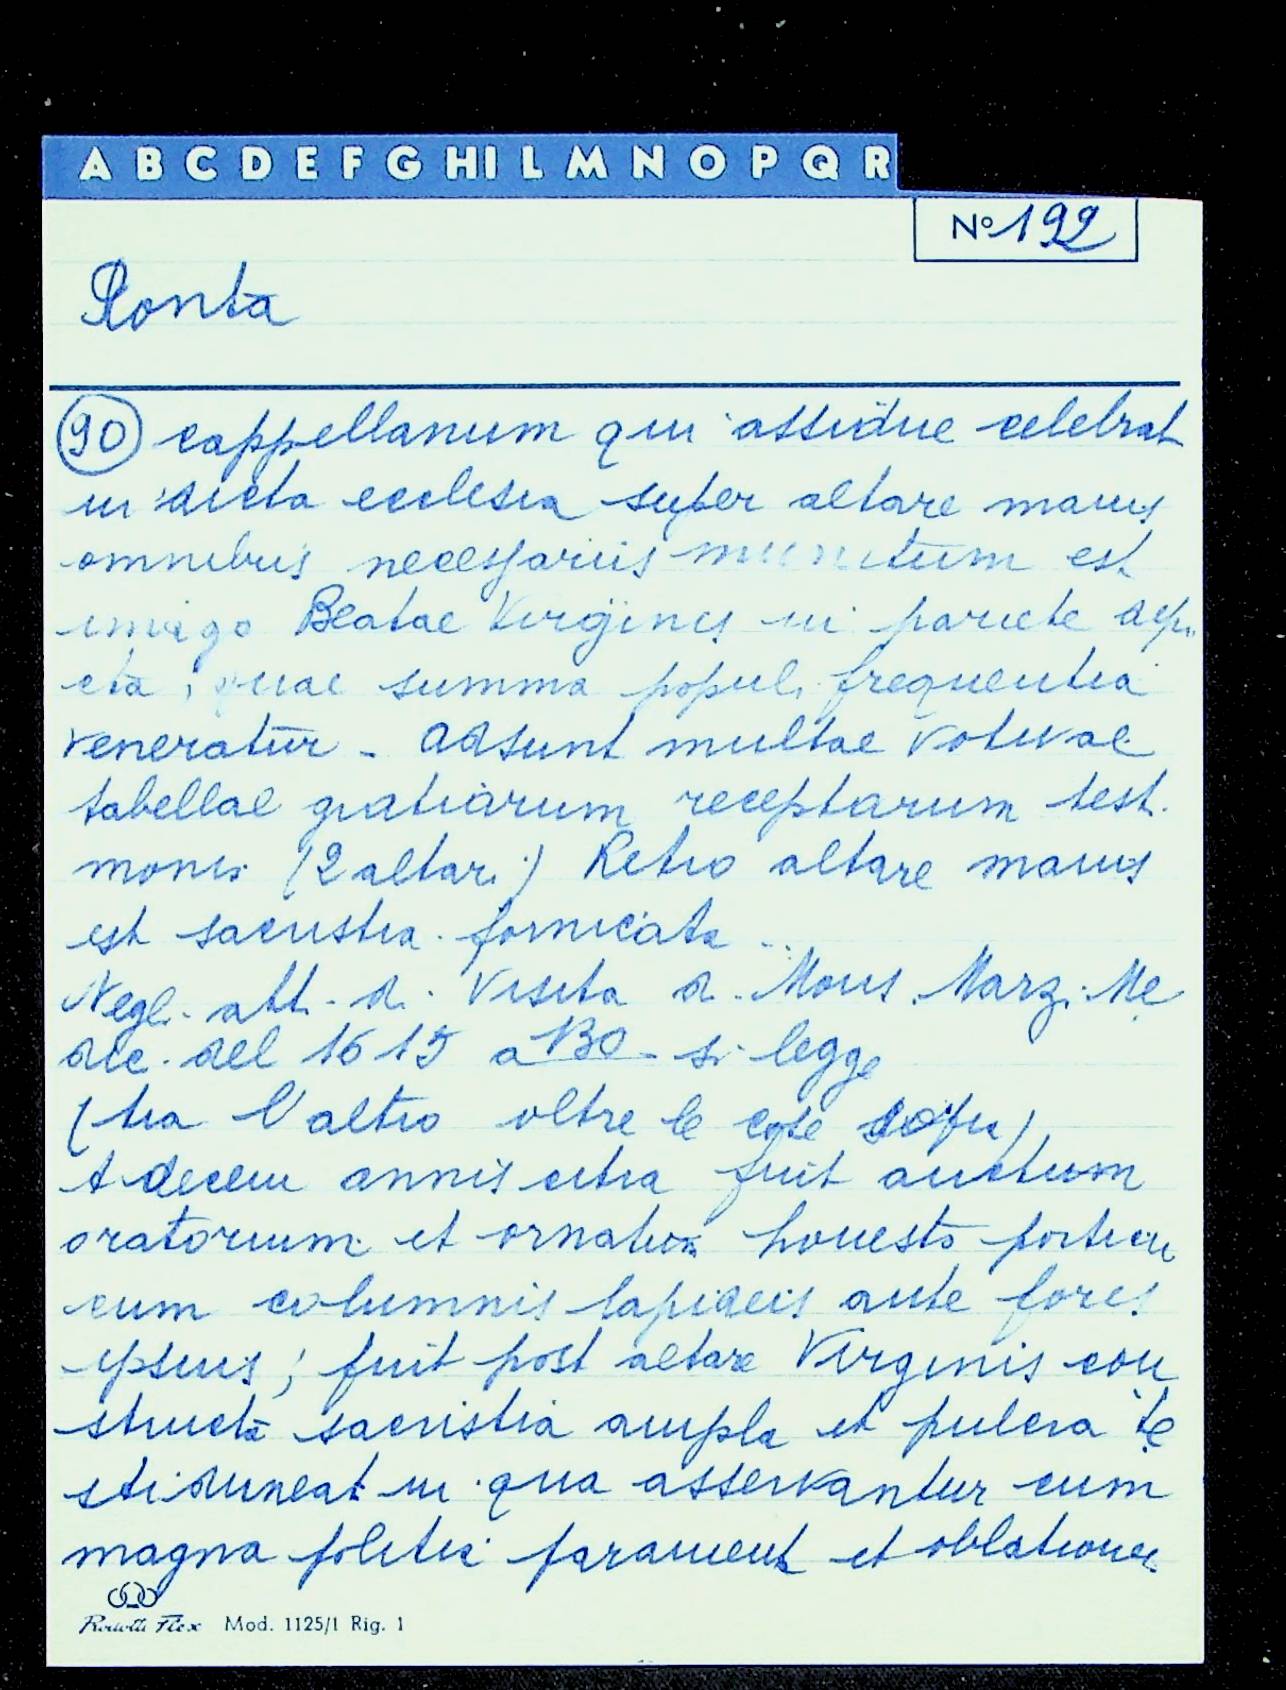 A B C D E F G HI L M N O P Q R
Nº 192
Ronta
90 cappellanum qui assidue celebrat
in dicta ecclesia super altare maius
omnibus necessariis munitum est
imago Beatae Virginis in pariete depi
cta, quae summa populi frequentia
veneratur - adsunt multae votivae
tabellae gratiarum receptarum testi
monis (2 altari) Retro altare maius
est sacristia fornicata ..
Negli atti di Visita di Mons. Marzi Me
dic. del 1615 a 130 si legge
(tra l'altro oltre le cose sopra)
A decem annis citra fuit auctum
oratorium et ornatum honesto porticu
cum columnis lapideis ante fores
ipsius; fuit post altare Virginis con
structa sacristia ampla et pulcra te
in qua asservantur cum
magna politia et oblationes
Mod. 1125/1 Rig. 1